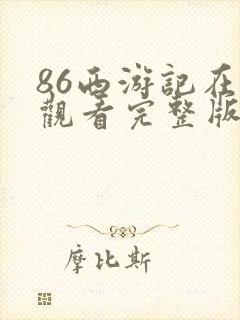 86西游記在
觀看完整版
摩比斯